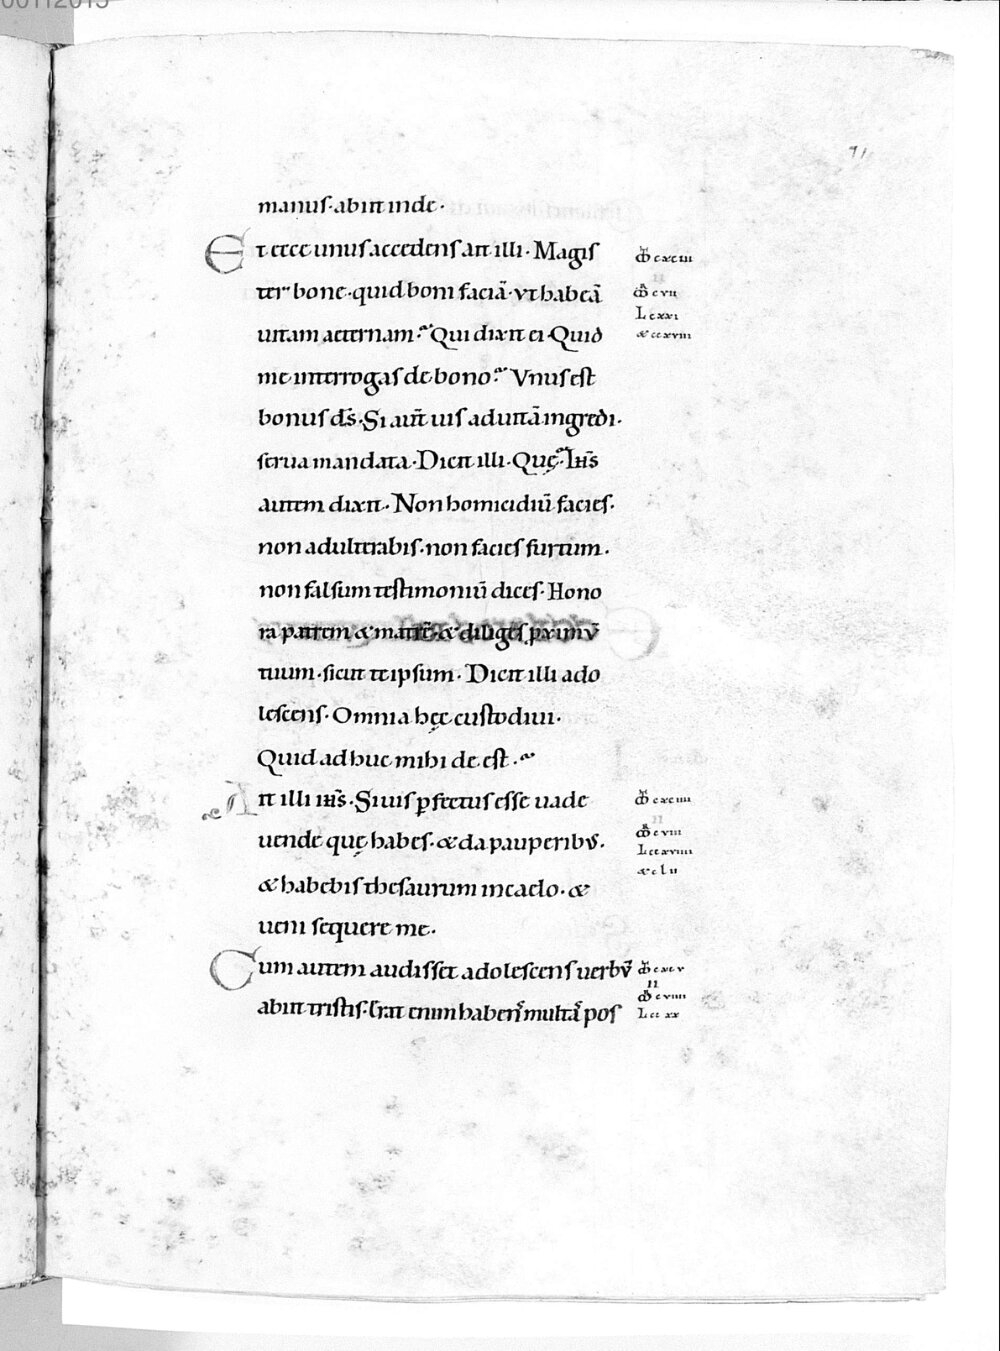 00112013
71
manus· abiit inde·
Et ecce unus accedens ait illi· Magis
ter bone· quid boni faciā· vt habeā
uitam aeternam? Qui dixit ei· Quid
me interrogas de bono? Vnus est
bonus d̄s· Si aut̄ uis ad uitā ingredi·
serua mandata· Dicit illi· Quę? Ih̄s
autem dixit· Non homicidiū facies·
non adulterabis· non facies furtum·
non falsum testimoniū dices· Hono
ra patrem & matrē· & diliges ꝓximū
tuum· sicut te ipsum· Dicit illi ado
lescens· Omnia hęc custodiui·
Quid adhuc mihi de est·
Ait illi ih̄s· Si uis ꝑfectus esse uade
uende quę habes· & da pauperibus·
& habebis thesaurum in caelo· &
ueni sequere me·
Cum autem audisset adolescens uerbū
abiit tristis· Erat enim habens multas pos
cxciii
cvii
L ccxviii
cxciiii
cviii
L ccxviiii
cxcv
II
cviiii
L ccxx